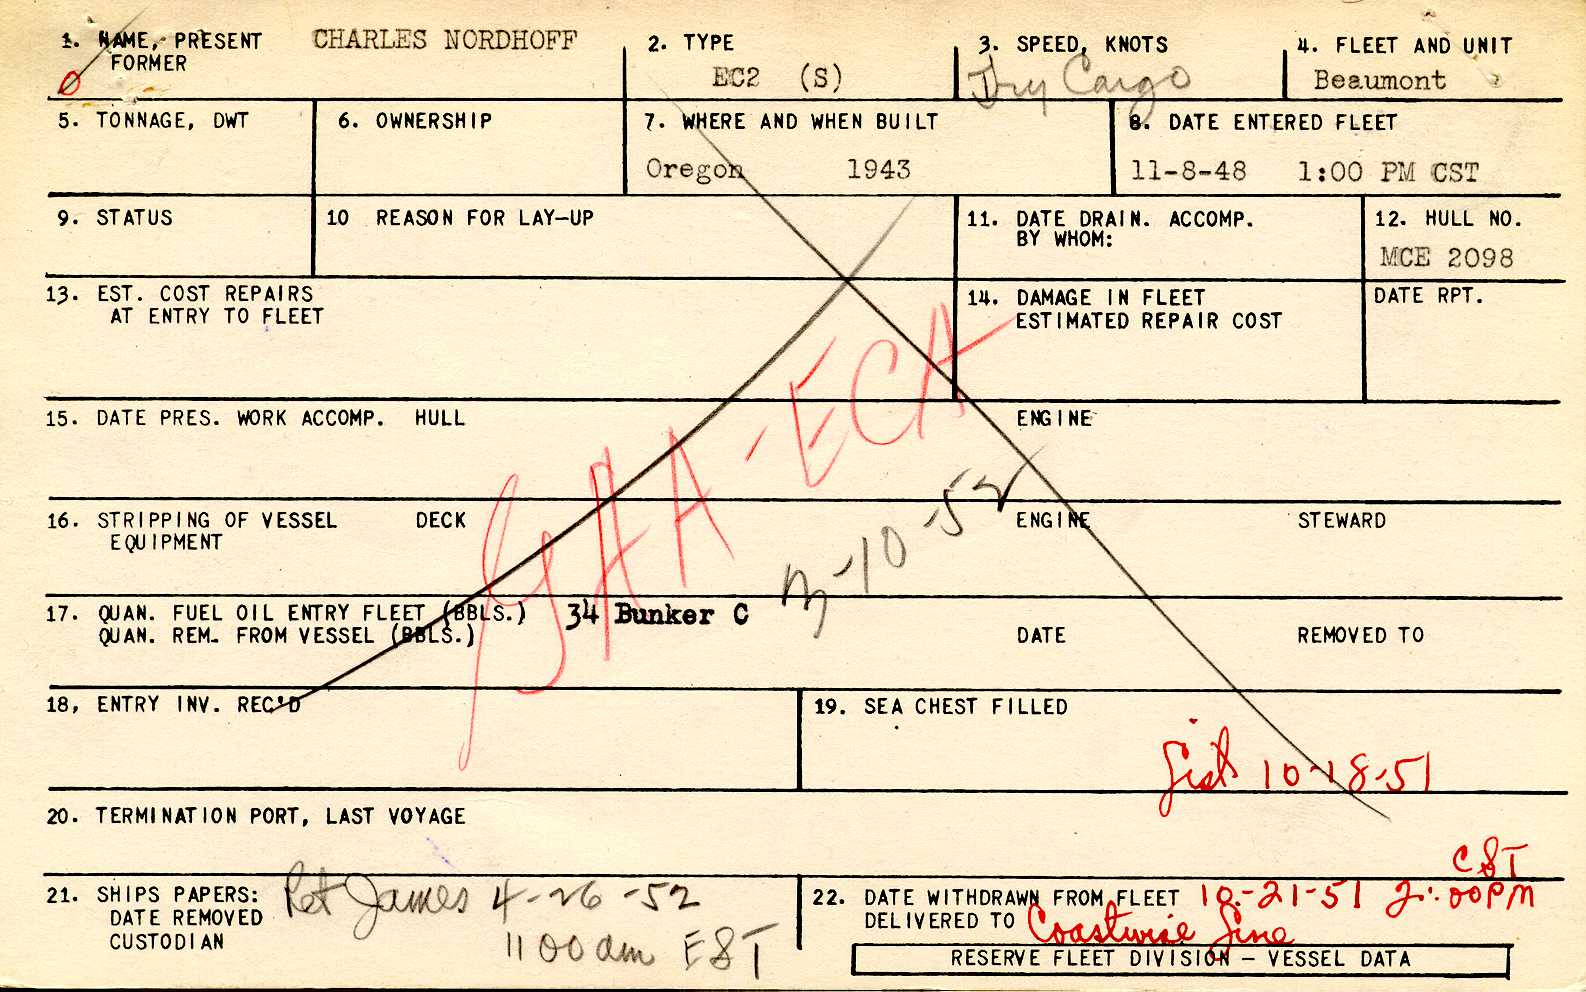 1. NAME, PRESENT CHARLES NORDHOFF
FORMER
O
2. TYPE
EC2 (S)
3. SPEED, KNOTS
Dry Cargo
4. FLEET AND UNIT
Beaumont
5. TONNAGE, DWT
6. OWNERSHIP
7. WHERE AND WHEN BUILT
Oregon 1943
8. DATE ENTERED FLEET
11-8-48 1:00 PM CST
9. STATUS
10 REASON FOR LAY-UP
11. DATE DRAIN. ACCOMP.
BY WHOM:
12. HULL NO.
MCE 2098
13. EST. COST REPAIRS
AT ENTRY TO FLEET
14. DAMAGE IN FLEET
ESTIMATED REPAIR COST
DATE RPT.
GAA-ECA
15. DATE PRES. WORK ACCOMP. HULL ENGINE
16. STRIPPING OF VESSEL DECK ENGINE STEWARD
EQUIPMENT
-10-52
17. QUAN. FUEL OIL ENTRY FLEET (BBLS.) 34 Bunker C
QUAN. REM. FROM VESSEL (BBLS.) DATE REMOVED TO
18, ENTRY INV. REC'D
19. SEA CHEST FILLED
10-18-51
20. TERMINATION PORT, LAST VOYAGE
21. SHIPS PAPERS: Ret James 4-26-52
DATE REMOVED
CUSTODIAN 1100 am EST
CST
22. DATE WITHDRAWN FROM FLEET 10-21-51 2:00PM
DELIVERED TO Coastwise Line
RESERVE FLEET DIVISION - VESSEL DATA